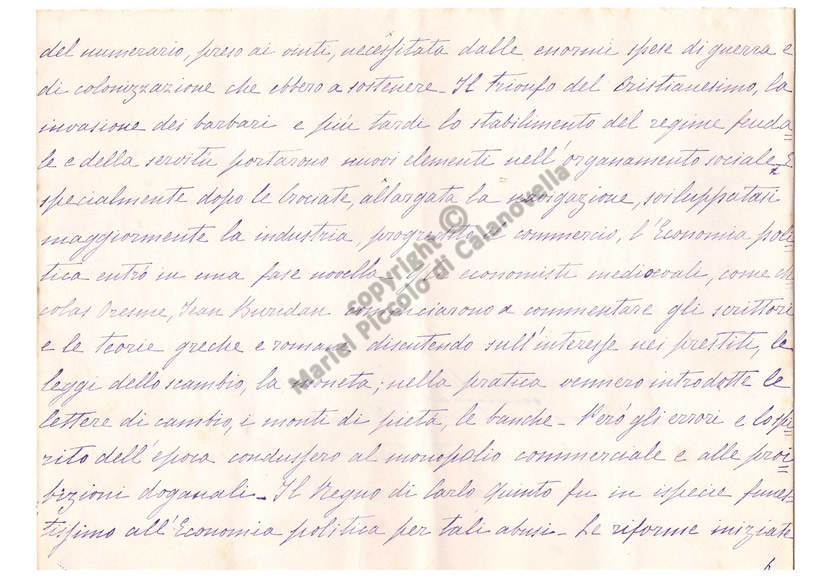 del numerario, preso ai vinti, necessitata dalle enormi spese di guerra e
di colonizzazione che ebbero a sostenere - Il trionfo del Cristianesimo, la
invasione dei barbari e più tardi lo stabilimento del regime feuda=
le e della servitù portarono nuovi elementi nell'organamento sociale. E
specialmente dopo le Crociate, allargata la navigazione, sviluppatasi
maggiormente la industria, progredito il commercio, l'Economia poli=
tica entrò in una fase novella - Gli economisti medioevali, come Ni=
colas Oresme, Jean Buridan cominciarono a commentare gli scrittori
e le teorie greche e romane discutendo sull'interesse nei prestiti, le
leggi dello scambio, la moneta; nella pratica vennero introdotte le
lettere di cambio, i monti di pietà, le banche - Però gli errori e lo spi=
rito dell'epoca condussero al monopolio commerciale e alle proi=
bizioni doganali - Il Regno di Carlo Quinto fu in ispecie funes=
tissimo all'Economia politica per tali abusi - Le riforme iniziate
copyright ©
Mariel Piccolo di Calanovella